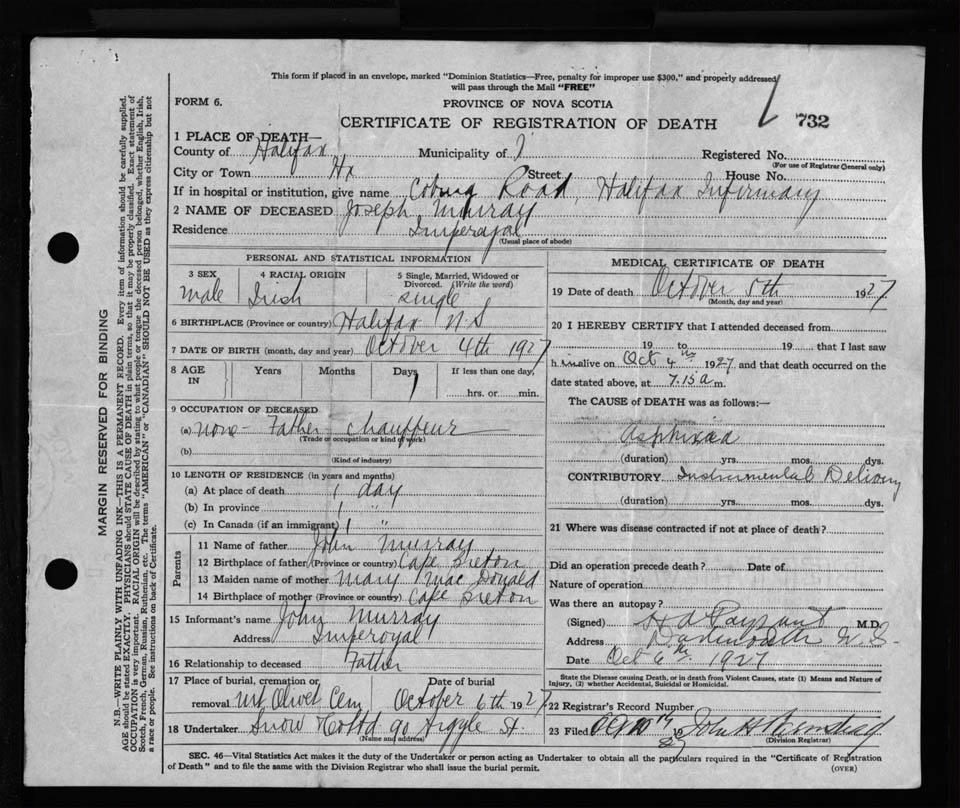 This form if placed in an envelope, marked "Dominion Statistics—Free, penalty for improper use $300," and properly addressed
will pass through the Mail "FREE"
FORM 6.
PROVINCE OF NOVA SCOTIA
CERTIFICATE OF REGISTRATION OF DEATH
732
1 PLACE OF DEATH—
County of Halifax Municipality of Registered No.
(For use of Registrar General only)
City or Town Hx Street House No.
If in hospital or institution, give name Coburg Road, Halifax Infirmary
2 NAME OF DECEASED Joseph Murray
Residence Imperoyal
(Usual place of abode)
PERSONAL AND STATISTICAL INFORMATION
3 SEX 4 RACIAL ORIGIN 5 Single, Married, Widowed or Divorced. (Write the word)
male Irish single
6 BIRTHPLACE (Province or country) Halifax N.S
7 DATE OF BIRTH (month, day and year) October 4th 1927
8 AGE IN Years Months Days If less than one day,
1 hrs. or min.
9 OCCUPATION OF DECEASED
(a) none - Father chauffeur
(Trade or occupation or kind of work)
(b)
(Kind of industry)
10 LENGTH OF RESIDENCE (in years and months)
(a) At place of death 1 day
(b) In province 1 "
(c) In Canada (if an immigrant) 1 "
Parents
11 Name of father John Murray
12 Birthplace of father (Province or country) Cape Breton
13 Maiden name of mother Mary MacDonald
14 Birthplace of mother (Province or country) Cape Breton
15 Informant's name John Murray
Address Imperoyal
16 Relationship to deceased Father
17 Place of burial, cremation or removal Date of burial
Mt Olivet Cem October 6th 1927
18 Undertaker Snow & Co Ltd 90 Argyle St.
(Name and address)
MEDICAL CERTIFICATE OF DEATH
19 Date of death October 5th 1927
(Month, day and year)
20 I HEREBY CERTIFY that I attended deceased from
19 to 19 that I last saw
him alive on Oct 4th 1927 and that death occurred on the
date stated above, at 7.15 a m.
The CAUSE of DEATH was as follows:—
Asphixia
(duration) yrs. mos. dys.
CONTRIBUTORY Instrumental Delivery
(duration) yrs. mos. dys.
21 Where was disease contracted if not at place of death?
Did an operation precede death? Date of
Nature of operation
Was there an autopsy?
(Signed) H A Payzant M.D.
Address Dartmouth N.S.
Date Oct 6th 1927
State the Disease causing Death, or in death from Violent Causes, state (1) Means and Nature of
Injury, (2) whether Accidental, Suicidal or Homicidal.
22 Registrar's Record Number
23 Filed 19 27 John H
(Division Registrar)
SEC. 46—Vital Statistics Act makes it the duty of the Undertaker or person acting as Undertaker to obtain all the particulars required in the "Certificate of Registration
of Death" and to file the same with the Division Registrar who shall issue the burial permit.
(OVER)
MARGIN RESERVED FOR BINDING
N.B.—WRITE PLAINLY WITH UNFADING INK—THIS IS A PERMANENT RECORD. Every item of information should be carefully supplied.
AGE should be stated EXACTLY. PHYSICIANS should STATE CAUSE OF DEATH in plain terms, so that it may be properly classified. Exact statement of
OCCUPATION is very important. RACIAL ORIGIN will be described by stating to what people or tongue the deceased person belonged, whether English, Irish,
Scotch, French, German, Russian, Ruthenian, etc. The terms "AMERICAN" or "CANADIAN" SHOULD NOT BE USED as they express citizenship but not
a race or people. See instructions on back of Certificate.